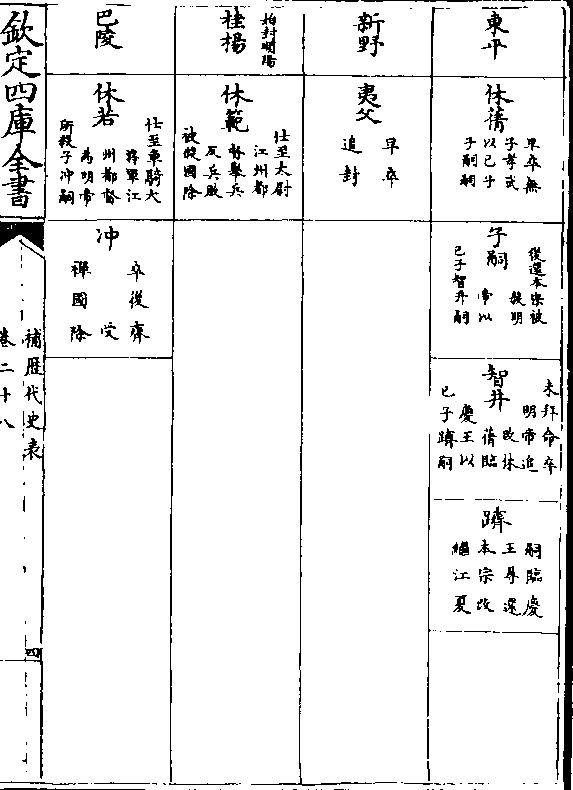 東平
休蒨
早卒無
子孝武
以已子
子嗣嗣
子嗣
後還本宗被
殺明
帝以
已子智井嗣
智井
未拜命卒
明帝追
改休
蒨臨
慶王以
已子躋嗣
躋
嗣臨慶
王尋還
本宗改
繼江夏
新野
夷父
早卒
追封
桂楊
封陽
休範
仕至太尉
江州都
督舉兵
反兵敗
被殺國除
巴陵
休若
仕至車騎大
將軍江
州都督
為明帝
所殺子冲嗣
冲
卒後齊
受
禪國除
欽定四庫全書
補歷代史表
卷二十八
四